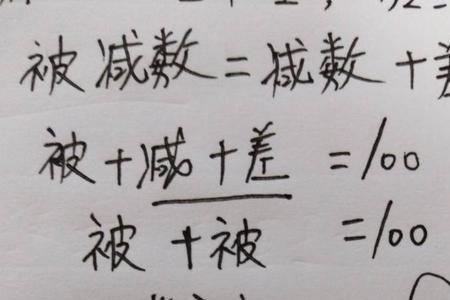 被减数=减数+差
被+减+差=100
被+被=100